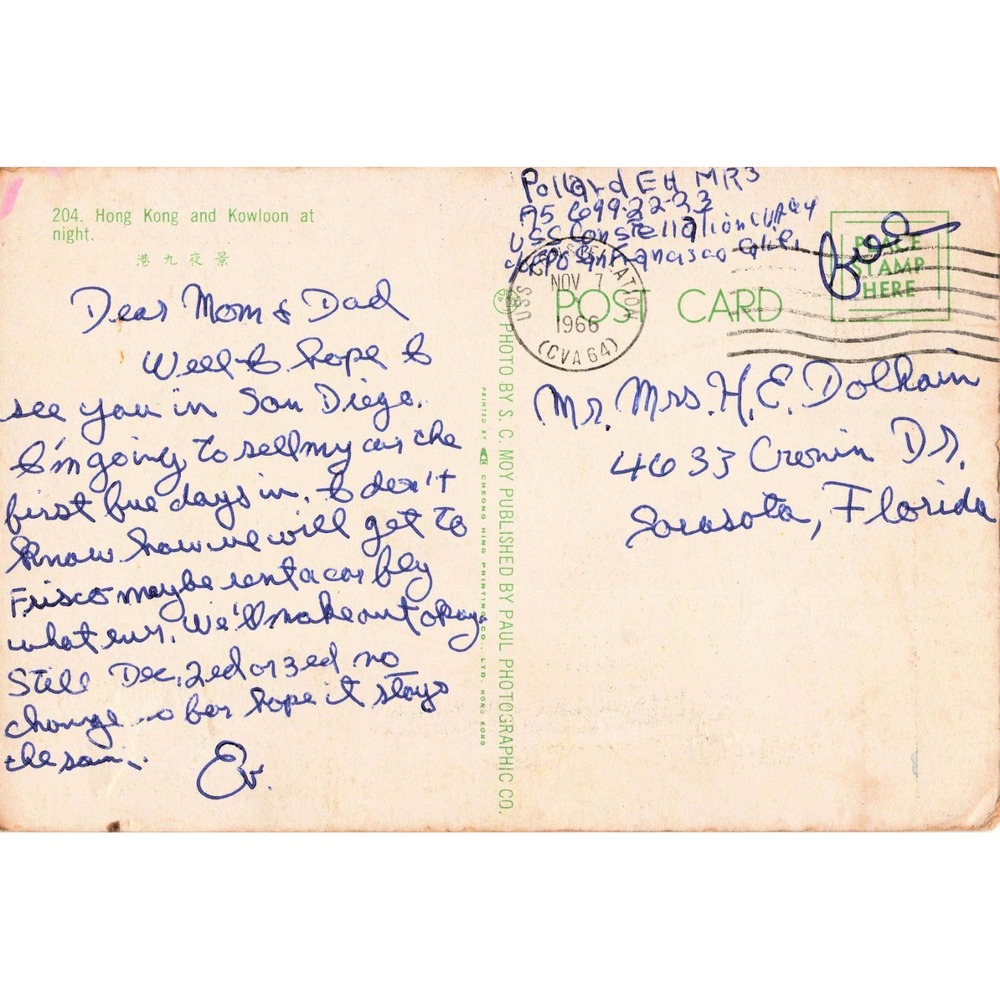 204. Hong Kong and Kowloon at
night.
港九夜景
Dear Mom & Dad
Well I hope I
see you in San Diego.
I'm going to sell my car the
first five days in. I don't
know how we will get to
Frisco maybe rent a car fly
what ever. We'll make out okay.
Still Dec. 2ed or 3ed no
change so far hope it stays
the same.
Ev.
Pollard E H MR3
699-22-23
USS Constellation CVA 64
FPO San Francisco Calif.
Free
PLACE
STAMP
HERE
USS CONSTELLATION
NOV 7
1966
(CVA 64)
POST CARD
Mr. Mrs. H. E. Dolhain
4633 Cronin Dr.
Sarasota, Florida
PHOTO BY S. C. MOY PUBLISHED BY PAUL PHOTOGRAPHIC CO.
PRINTED BY CHEONG HING PRINTING CO., LTD. HONG KONG